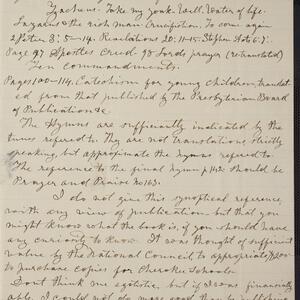 Zacheus. Take my yoke. Well. Water of life.
Lazarus & the rich man. Crucifixion. To come again
2 Peter 3: 5-14. Revelations 20: 11-15. Stephen Acts 6:7.
Page 97 Apostles Creed 98 Lords prayer (retranslated)
Ten commandments.
Pages 100-114, Catechism for young children, translat
ed from that published by the Presbyterian Board
of Publication &c.
The Hymns are sufficiently indicated by the
tunes referred to. They are not translations, strictly
speaking, but approximate the hymns referred to.
The reference to the final hymn p 142 should be
Prayer and Praise No 163.
I do not give this synoptical reference,
with any view of publication but that you
might know what the book is, if you should have
any curiosity to know. It was thought of sufficient
value by the National Council to appropriate $200-
to purchase copies for Cherokee Schools.
Dont think me egotistic, but if I was financially
able, I could not do more good than